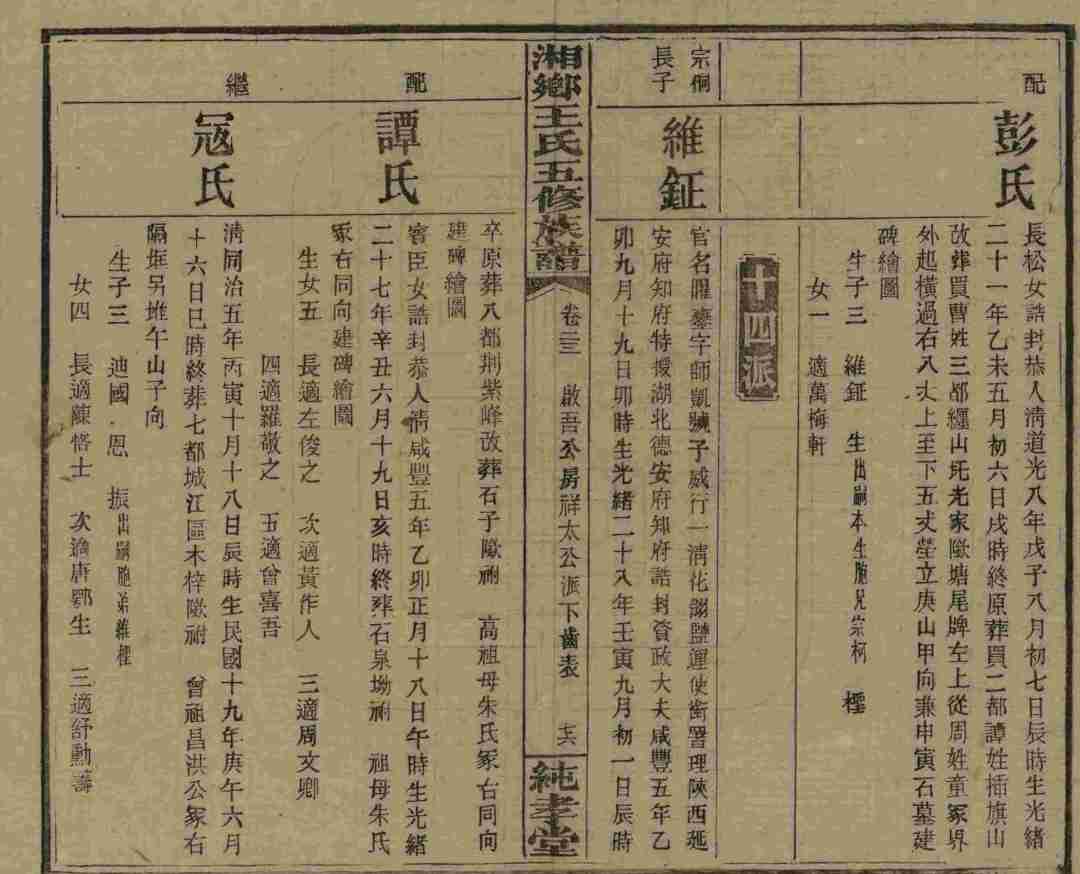 配
彭氏
長松女誥封恭人清道光八年戊子八月初七日辰時生光緒
二十一年乙未五月初六日戌時終原葬買二都譚姓插旗山
改葬買曹姓三都纏山圫老家歐塘尾牌左上從周姓童冢界
外起橫過右八丈上至下五丈塋立庚山甲向兼申寅石墓建
碑繪圖
生子三 維鉦 生出嗣本生胞兄宗柯 檉
女一 適萬梅軒
十四派
宗侗
長子
維鉦
官名 字師凱號子威行一清花翎鹽運使銜署理陝西延
安府知府特授湖北德安府知府誥封資政大夫咸豐五年乙
卯九月十九日卯時生光緒二十八年壬寅九月初一日辰時
湘鄉王氏五修族譜
卷三 啟吾公房祥太公派下齒表
純孝堂
卒原葬八都荆紫峰改葬石子歐祔 高祖母朱氏冢右同向
建碑繪圖
配
譚氏
賓臣女誥封恭人清咸豐五年乙卯正月十八日午時生光緒
二十七年辛丑六月十九日亥時終葬石泉坳祔 祖母朱氏
冢右同向建碑繪圖
生女五 長適左俊之 次適黃作人 三適周文卿
四適羅敬之 五適曾喜吾
繼
寇氏
清同治五年丙寅十月十八日辰時生民國十九年庚午六月
十六日巳時終葬七都城江區木梓歐祔 曾祖昌洪公冢右
隔 另堆午山子向
生子三 迪國 恩 振出嗣胞弟維檉
女四 長適陳恪士 次適唐鄂生 三適舒勳壽